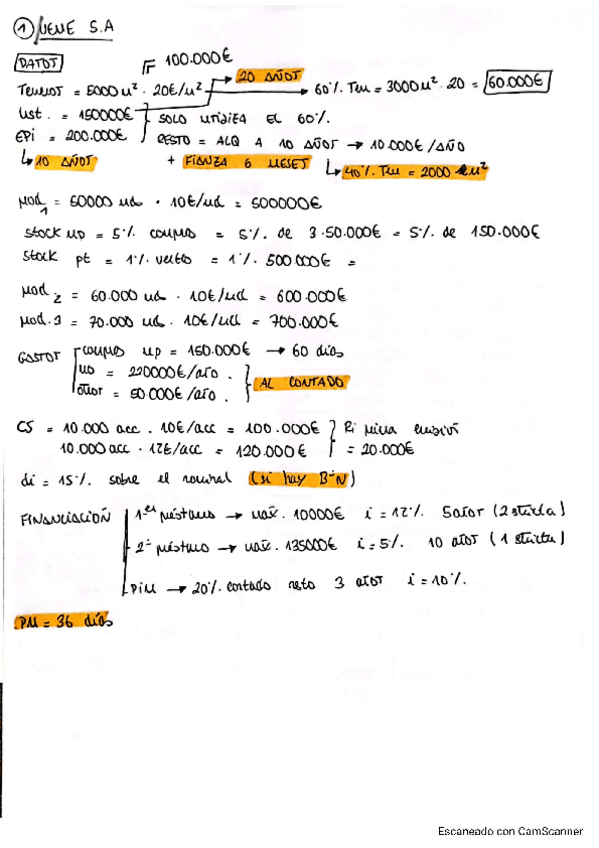 ① JENE S.A
DATOS
100.000€
Terrenos = 5000 m² · 20€/m²
20 AÑOS
60% Terr = 3000 m² · 20 = 60.000€
Const. = 150000€
SOLO UTILIZA EL 60%.
EPI = 200.000€
RESTO = ALQ A 10 AÑOS → 10.000€/AÑO
↳ 10 AÑOS
+ FIANZA 6 MESES
↳ 40% Terr = 2000 m²
Prod 1 = 50000 ud · 10€/ud = 500000€
stock mp = 5% compras = 5% de 3·50.000€ = 5% de 150.000€
stock pt = 1% ventas = 1% · 500 000€ =
Prod 2 = 60.000 ud · 10€/ud = 600.000€
Prod. 3 = 70.000 ud · 10€/ud = 700.000€
GASTOS
compras mp = 150.000€ → 60 días
mo = 220000€/año.
otros = 50 000€/año.
AL CONTADO
CS = 10.000 acc. 10€/acc = 100.000€
10.000 acc · 12€/acc = 120.000€
Pr prima emisión
= 20.000€
di = 15% sobre el nominal (si hay BºN)
FINANCIACIÓN
1er préstamo → máx. 10000€ i = 12% 5 años (2 )
2º préstamo → máx. 135000€ i = 5% 10 años (1 )
PIM → 20% contado resto 3 años i = 10%.
PM = 36 días
Escaneado con CamScanner